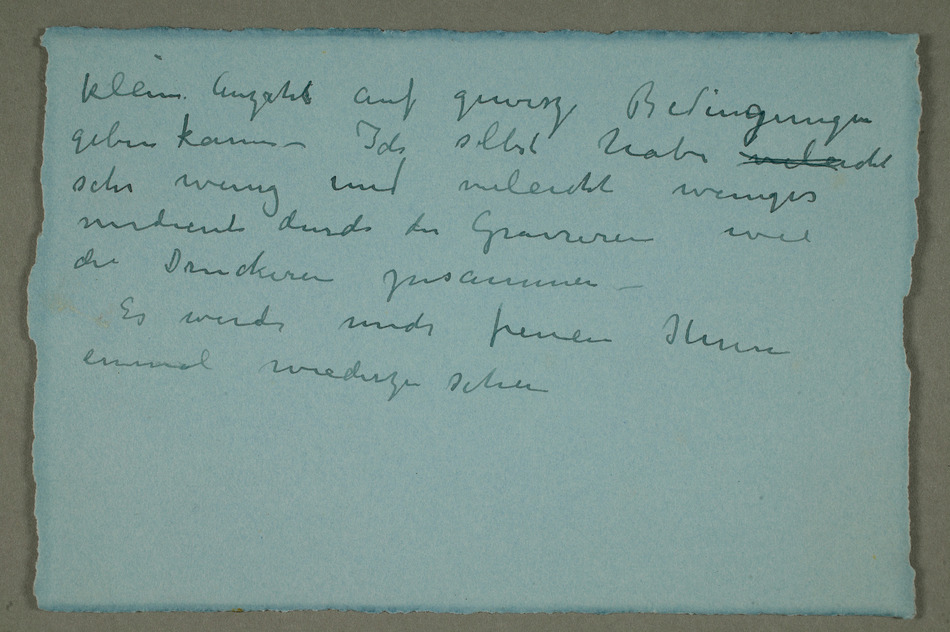 klein Anzahl auf gewisze Bedingungen
geben kann – Ich selbst habe vieleicht
sehr wenig und vieleicht weniges
verdient durch die Gravuren wie
die Druckeren zusammen –
Es würde mich freuen Ihnen
einmal wiederzu sehen